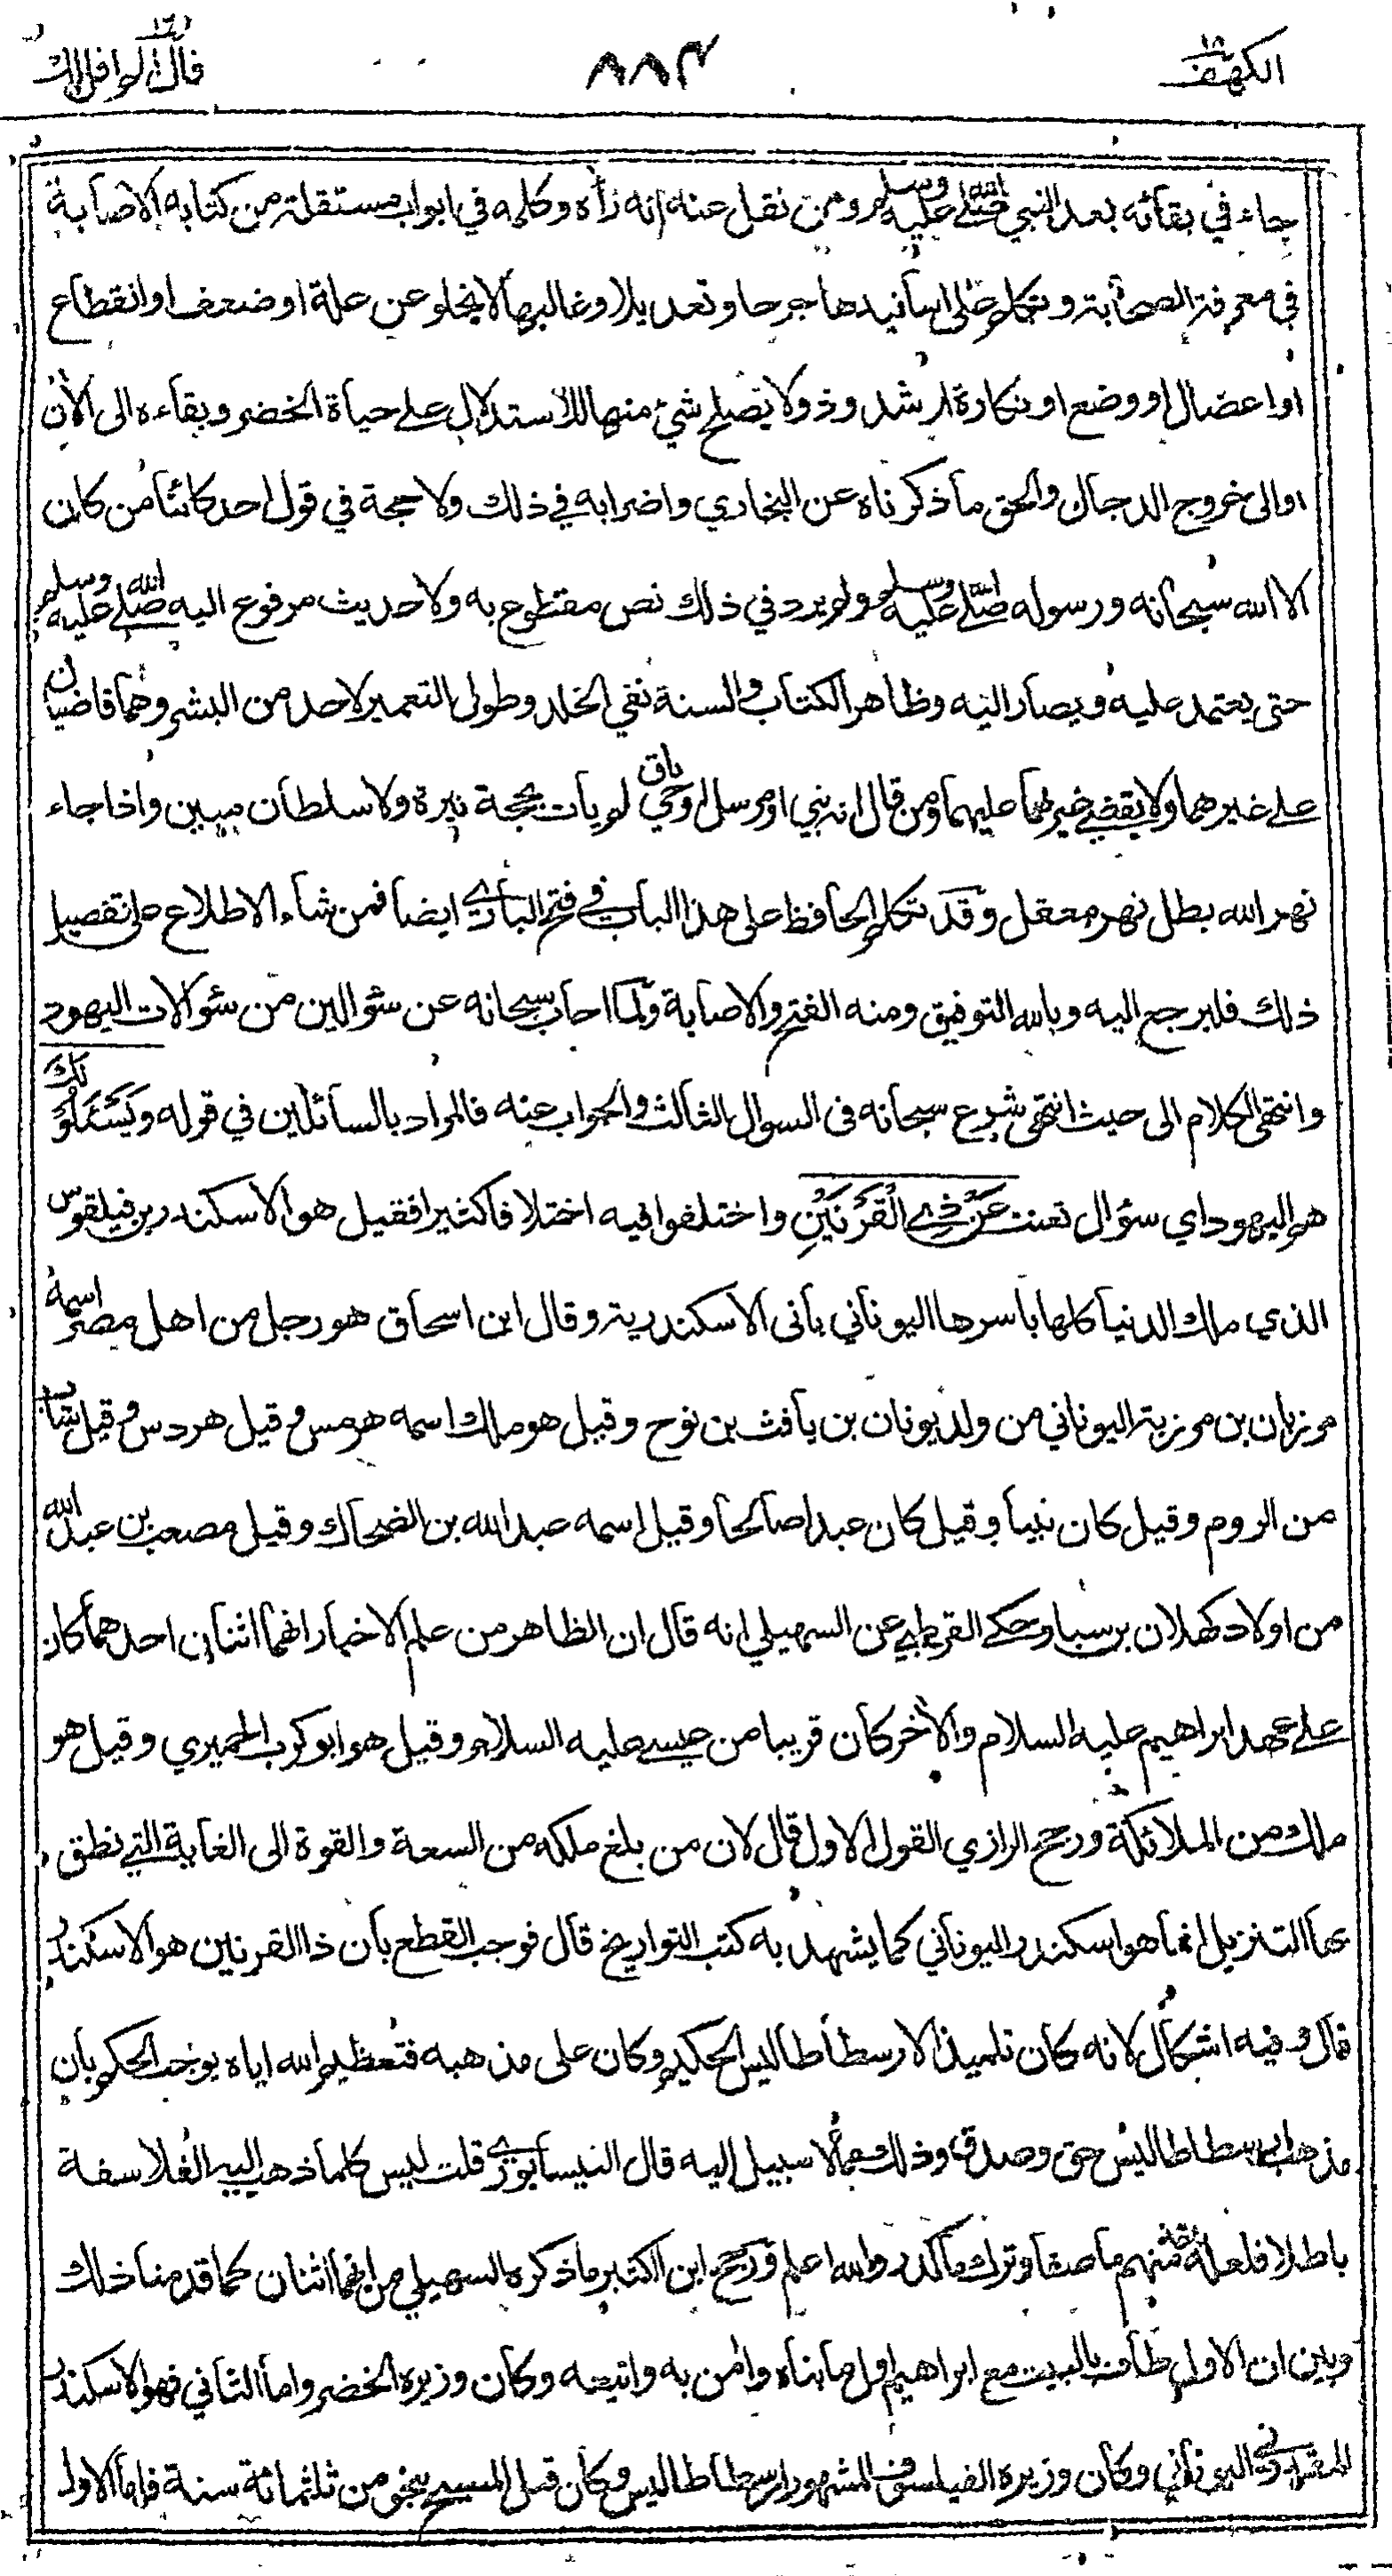 الكهف ١٨
٨٨٣
قال الم اقل لك ١٦
جاء في بقائه بعد النبي صلى الله عليه وسلم ومن نقل عنه انه رأه وكلمه في ابواب مستقلة من كتابه الاصابة
في معرفة الصحابة وتكلم على اسانيدها جرحا وتعديلا وغالبها لا يخلو عن علة او ضعف او انقطاع
او اعضال او وضع او نكارة او شذوذ ولا يصلح شيء منها للاستدلال على حياة الخضر وبقاءه الى الأن
او الى خروج الدجال والحق ما ذكرناه عن البخاري واضرابه في ذلك ولا حجة في قول احد كائنا من كان
الا الله سبحانه ورسوله صلى الله عليه وسلم ولم يرد في ذلك نص مقطوع به ولا حديث مرفوع اليه صلى الله عليه وسلم
حتى يعتمد عليه ويصار اليه وظاهر الكتاب والسنة نفي الخلد وطول التعمير لاحد من البشر وهما قاضيان
على غيرهما ولا يقضي غيرهما عليهما ومن قال انه نبي او مرسل او حي باق لم يات بحجة نيرة ولا سلطان مبين واذا جاء
نهر الله بطل نهر معقل وقد تكلم الحافظ على هذا الباب في فتح الباري ايضا فمن شاء الاطلاع على تفصيل
ذلك فليرجع اليه وبالله التوفيق ومنه الفتح والاصابة ولما اجاب سبحانه عن سؤالين من سئوالات اليهود
وانتهى الكلام الى حيث انتهى شرع سبحانه فى السوال الثالث والجواب عنه فالمراد بالسائلين في قوله وَيَسْئَلُوْنَكَ
هم اليهود اي سؤال تعنت عَنْ ذِي الْقَرْنَيْنِ واختلفوا فيه اختلافا كثيرا فقيل هو الاسكندر بن فيلقوس
الذي ملك الدنيا كلها بأسرها اليوناني بانى الاسكندرية وقال ابن اسحاق هو رجل من اهل مصر اسمه
مرزبان بن مرزبة اليوناني من ولد يونان بن يافث بن نوح وقيل هو ملك اسمه هرمس وقيل هردس وقيل شاب
من الروم وقيل كان نبيا وقيل كان عبدا صالحا وقيل اسمه عبد الله بن الضحاك وقيل مصعب بن عبد الله
من اولاد كهلان بن سبا وحكى القرطبي عن السهيلي انه قال ان الظاهر من علم الاخبار انهما اثنان احدهما كان
على عهد ابراهيم عليه السلام والأخر كان قريبا من عيسى عليه السلام وقيل هو ابو كرب الحميري وقيل هو
ملك من الملائكة ورجح الرازي القول الاول قال لان من بلغ ملكه من السعة والقوة الى الغاية التي نطق
بها التنزيل انما هو اسكندر اليوناني كما يشهد به كتب التواريخ قال فوجب القطع بأن ذا القرنين هو الاسكندر
قال وفيه اشكال لانه كان تلميذا لارسطاطاليس الحكيم وكان على مذهبه فتعظيم الله اياه يوجب الحكم بان
مذهب ارسطاطاليس حق وصدق وذلك مما لا سبيل اليه قال النيسابوري قلت ليس كلما ذهب اليه الفلاسفة
باطلا فلعله اخذ منهم ما صفا وترك ما كدر والله اعلم ورجح ابن الكثير ما ذكره السهيلي من انهما اثنان كما قدمنا ذلك
وبين ان الاول طاف بالبيت مع ابراهيم اول ما بناه وأمن به واتبعه وكان وزيره الخضر واما الثاني فهو الاسكندر
المقدوني اليوناني وكان وزيره الفيلسوف المشهور ارسطاطاليس وكان قبل المسيح بنحو من ثلثمائة سنة فاما الاول